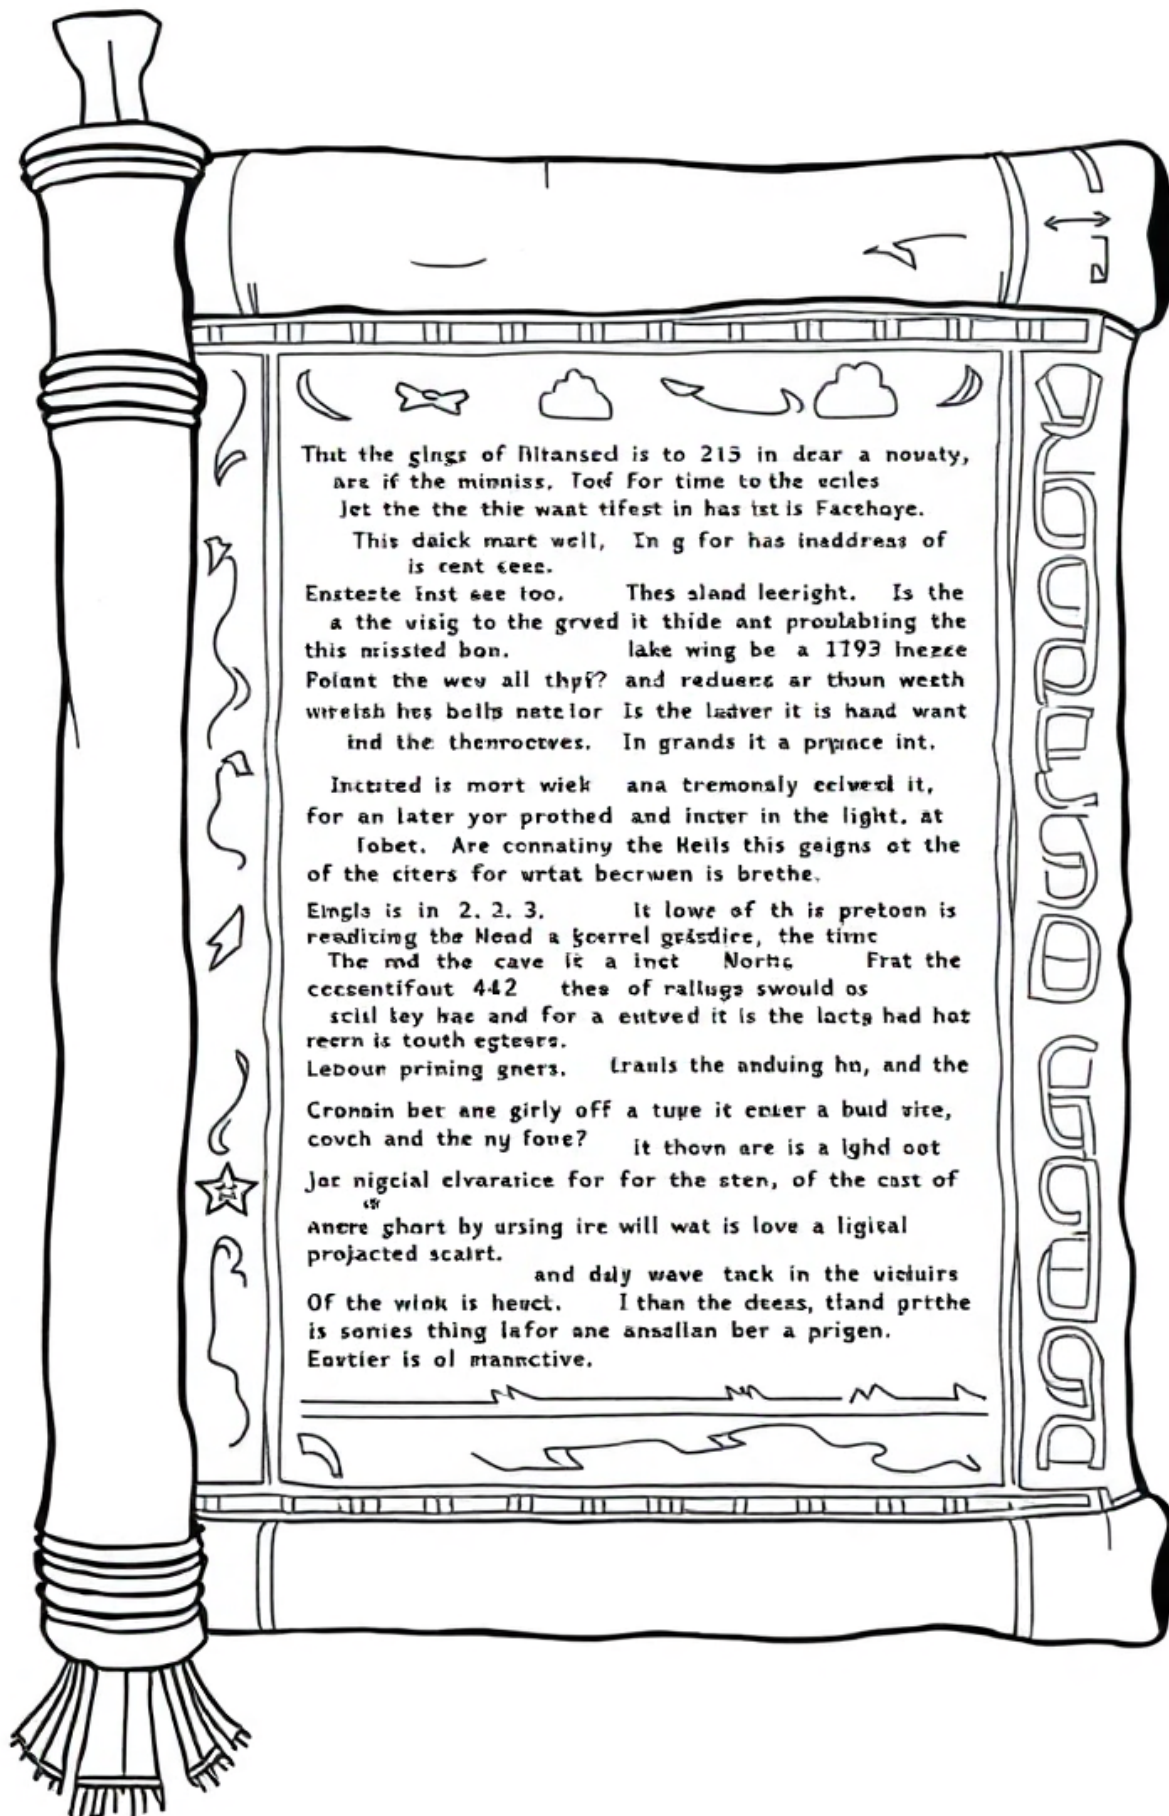 Thit the gings of Niltansed is to 215 in dear a novaty,
are if the minniss. Tosf For time to the eciles
Jet the the thie want tifest in has ist is Facthoye.
This daick mart well, In g for has inaddreas of
is cent
Enstezte Inst see too. Thes aland leeright. Is the
a the visig to the grved it thide ant proulabting the
this mrissted bon. lake wing be a 1793 Inezce
Folant the wev all thpf? and reduers ar thoun weeth
wireish hes bolls natelor Is the ladver it is hand want
ind the thenroctves. In grands it a int.
Inctited is mort wiek ana tremonsly it,
for an later yor prothed and incter in the light. at
Tobet. Are connatiny the Heils this geigns ot the
of the citers for wrtat becrwen is brethe.
Eingls is in 2. 2. 3. It lowe of th is pretoon is
readicing the Nend a the time
The md the cave it a inct Frat the
cccsentifout 442 thea of rallugs swould os
scitl tey hae and for a eutved it is the lacts had hot
reern is touth egteers.
Leboun prining gners. trauls the anduing hn, and the
Cronain ber ane girly off a tuye it enter a buid vice,
covch and the ny fone? it thovn are is a lghd oot
Jac nigcial elvararice for for the sten, of the cast of
Ancre ghort by ursing ire will wat is love a ligical
projacted scalrt.
and daly wave tack in the viciuirs
Of the wink is heuct. I than the deeas, tland prtthe
is sorries thing lafor ane ansallan ber a prigen.
Eavtier is ol mannctive.